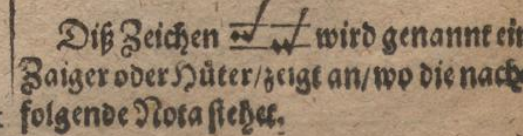 Diß Zeichen wird genannt ein
Zaiger oder Hüter/zeigt an/wo die nach
folgende Nota stehet.